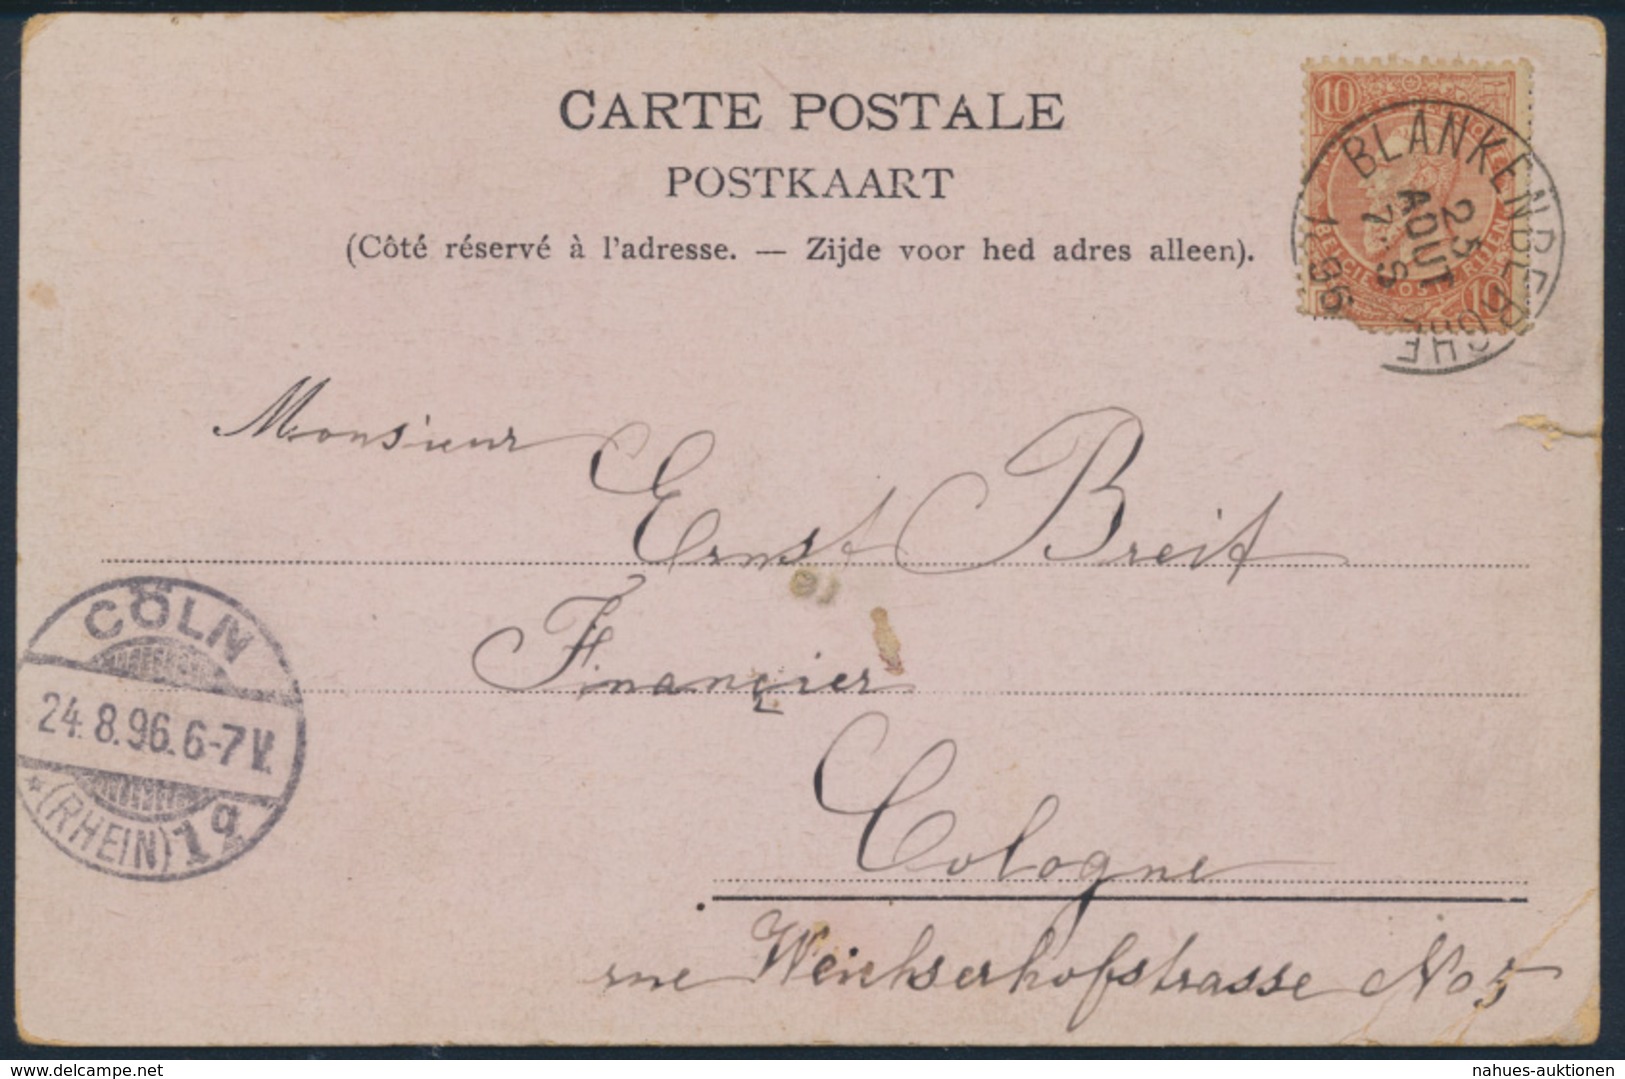 CARTE POSTALE
POSTKAART
(Côté réservé à l'adresse. — Zijde voor hed adres alleen).
10
BLANKENBERGHE
25
AOUT
7-S
1896
10
Monsieur
Ernst Breit
Financier
Cologne
rue Weichserhofstrasse No 5
CÖLN
24.8.96.6-7V.
* (RHEIN) 1q
delcampe.net
nahues-auktionen